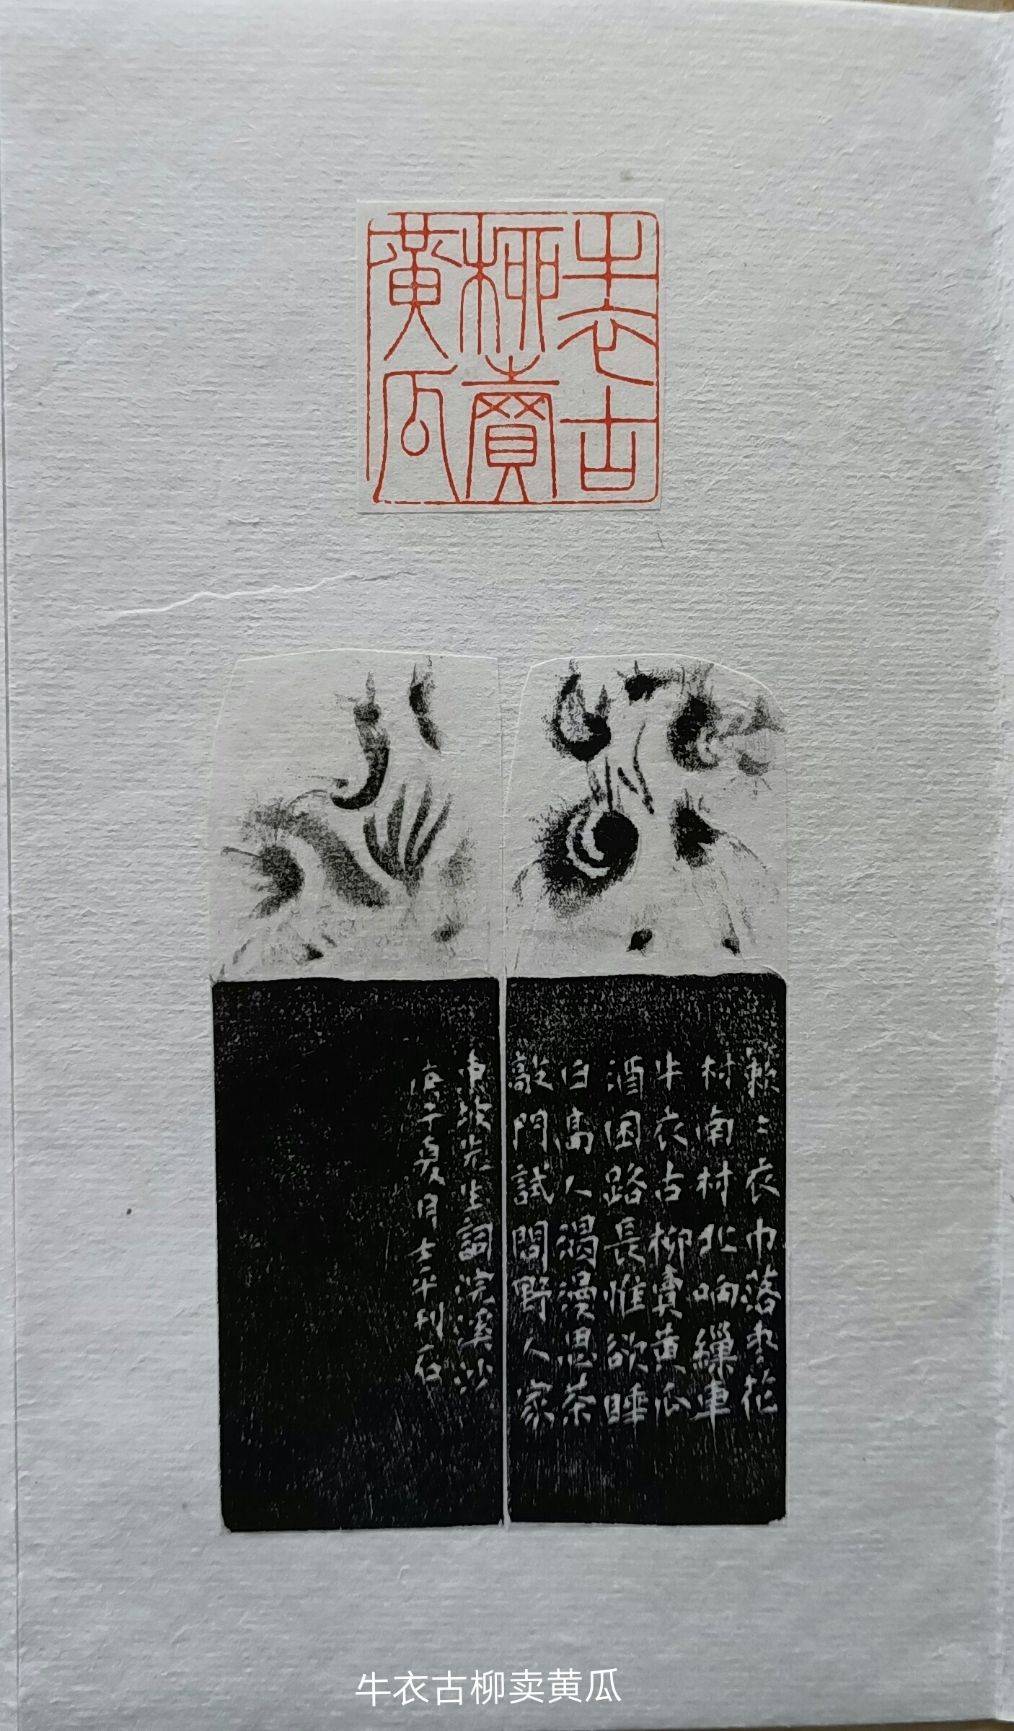 牛衣古
柳賣
黃瓜
簌〻衣巾落枣花
村南村北响繅車
牛衣古柳賣黄瓜
酒困路長惟欲睡
日高人渴漫思茶
敲門試問野人家
東坡先生詞浣溪沙
庚子夏月士平刊石
牛衣古柳卖黄瓜